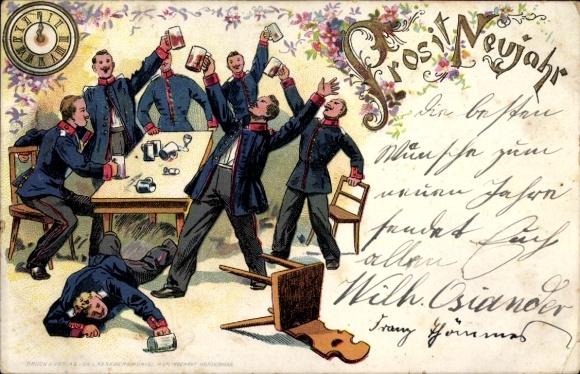 Prosit Neujahr
die besten
Wünsche zum
neuen Jahre
sendet Euch
allen
Wilh. Osiander
Franz